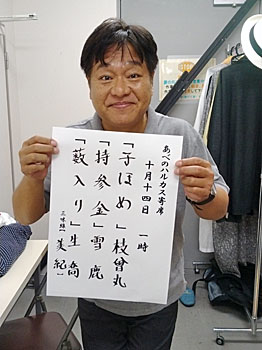 あべのハルカス寄席
十月十四日 一時
「子ほめ」枝曾丸
「持参金」雪鹿
「藪入り」生喬
三味線 美紀